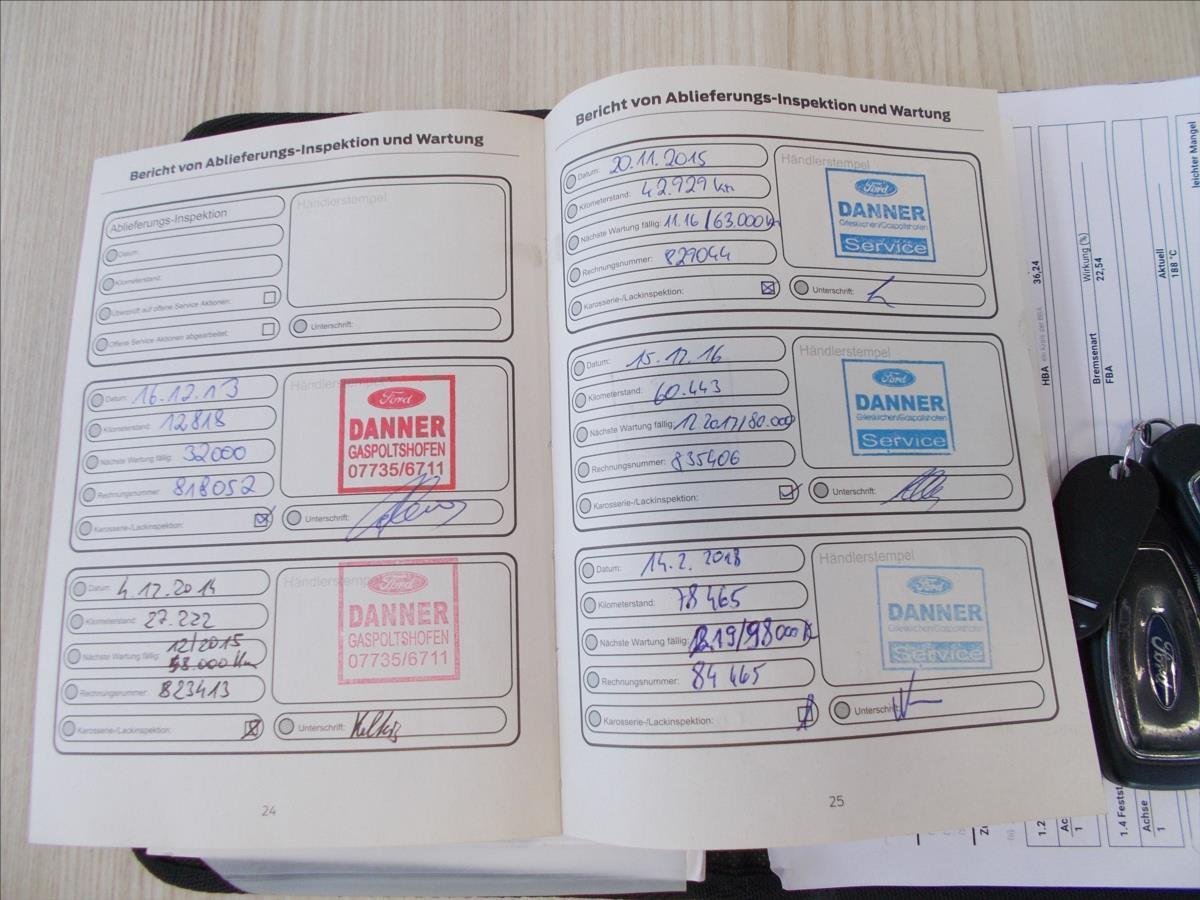 Bericht von Ablieferungs-Inspektion und Wartung
Ablieferungs-Inspektion
Datum:
Kilometerstand:
Überprüft auf offene Service Aktionen:
Offene Service Aktionen abgearbeitet:
Händlerstempel
Unterschrift:
Datum: 16.12.13
Kilometerstand: 12818
Nächste Wartung fällig: 32000
Rechnungsnummer: 818052
Karosserie-/Lackinspektion:
Händlerstempel
Ford
DANNER
GASPOLTSHOFEN
07735/6711
Unterschrift:
Datum: 4.12.2014
Kilometerstand: 27.222
12/2015
Nächste Wartung fällig: 48.000 Km
Rechnungsnummer: 823413
Karosserie-/Lackinspektion:
Händlerstempel
Ford
DANNER
GASPOLTSHOFEN
07735/6711
Unterschrift:
24
Bericht von Ablieferungs-Inspektion und Wartung
Datum: 20.11.2015
Kilometerstand: 42.929 km
Nächste Wartung fällig: 11.16/63.000 km
Rechnungsnummer: 829044
Karosserie-/Lackinspektion:
Händlerstempel
Ford
DANNER
Service
Unterschrift:
Datum: 15.12.16
Kilometerstand: 60.443
Nächste Wartung fällig: 12 2017/80.000
Rechnungsnummer: 835406
Karosserie-/Lackinspektion:
Händlerstempel
Ford
DANNER
Service
Unterschrift:
Datum: 14.2.2018
Kilometerstand: 78 465
Nächste Wartung fällig: 19/98 000
Rechnungsnummer: 84 465
Karosserie-/Lackinspektion:
Händlerstempel
Ford
DANNER
Service
Unterschrift:
25
leichter Mangel
Aktuell
188 °C
Wirkung (%)
22,54
Bremsenart
FBA
36,24
HBA
1.2
1
1.4
Achse
1
Ford